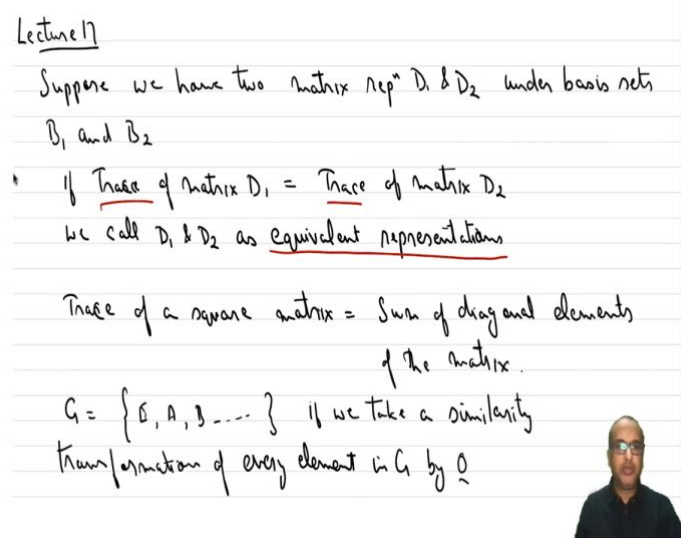 Lecture 17
Suppose we have two matrix repⁿ D₁ & D₂ under basis sets
B₁ and B₂
if Trace of matrix D₁ = Trace of matrix D₂
we call D₁ & D₂ as equivalent representations
Trace of a square matrix = Sum of diagonal elements
of the matrix.
G = { E, A, B .... } if we take a similarity
transformation of every element in G by Q